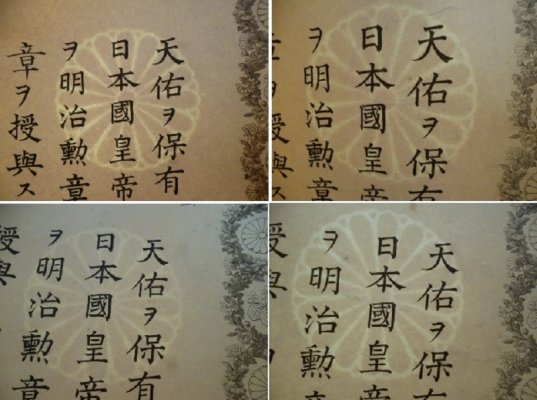 天佑ヲ保有
日本國皇帝
ヲ明治勲章
章ヲ授與ス
天佑ヲ保有
日本國皇帝
ヲ明治勲章
ヲ授與ス
天佑ヲ保有
日本國皇帝
ヲ明治勲章
授與
天佑ヲ保有
日本國皇帝
ヲ明治勲章
授與